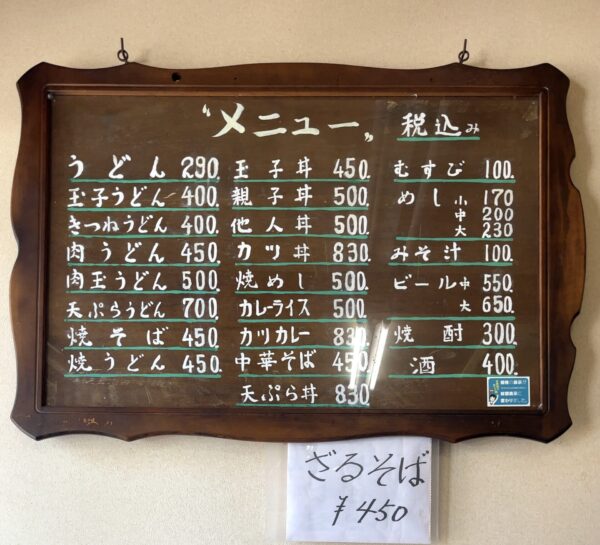 〝メニュー〟 税込み
うどん 290.
玉子うどん 400.
きつねうどん 400.
肉うどん 450.
肉玉うどん 500.
天ぷらうどん 700.
焼そば 450.
焼うどん 450.
玉子丼 450.
親子丼 500.
他人丼 500.
カツ丼 830.
焼めし 500.
カレーライス 500.
カツカレー 830.
中華そば 450.
天ぷら丼 830
むすび 100.
めし 小 170
中 200
大 230
みそ汁 100.
ビール 中 550
大 650.
焼酎 300.
酒 400.
ざるそば
¥450